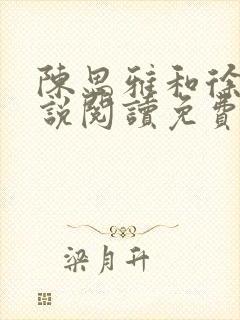 陳思雅和徐
說閱讀免費
梁月升